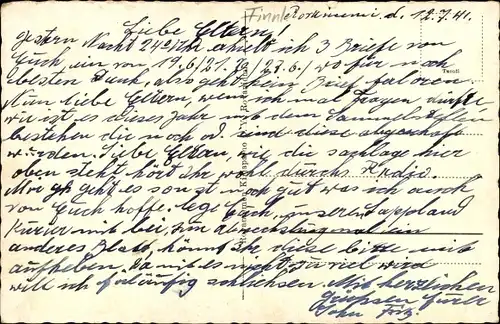 Finnl. Porkiniemi d. 12.7.41.
Liebe Eltern!
Gestern Nacht 24 Uhr erhielt ich 3 Briefe von
Euch, ein von 19.6/21.6/27.6./ wo für noch
besten Dank, also geht kein Brief faloren.
Nun liebe Eltern, wenn ich mal fragen, dürfte,
wie ist es dieses Jahr mit dem Sammelstellen
bestehen die noch od. sind diese abgeschaft
würden. Liebe Eltern, wie die sachlage hier
oben steht hört Ihr wohl durchs Radio.
Mir geht es sonst noch gut was ich auch
von Euch hoffe. lege Euch, unseren Lappland
Kurier mit bei, zur abwechslung mal ein
anderes Blatt, könnt Ihr diese bitte mit
aufheben. Da mit es nicht zu viel wird
will ich foläufig schliehsen. Mit herzlichen
Grüssen Eurer
Sohn Fritz